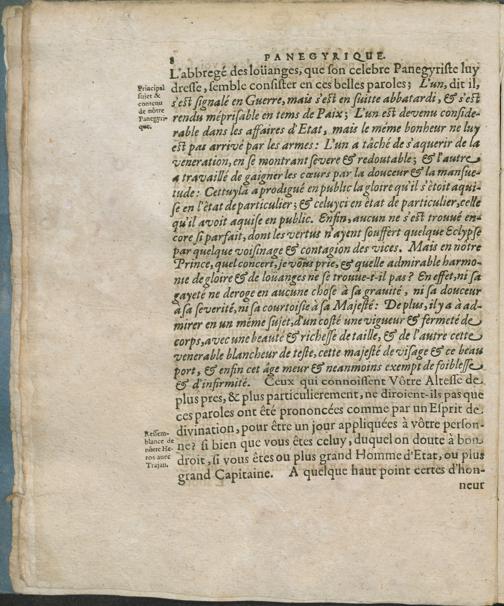 8 PANEGYRIQUE.
L'abbregé des loüanges, que son celebre Panegyriste luy
dresse, semble consister en ces belles paroles; L'un, dit il,
s'est signalé en Guerre, mais s'est en suitte abbatardi, & s'est
rendu méprisable en tems de Paix; L'un est devenu conside-
rable dans les affaires d'Etat, mais le même bonheur ne luy
est pas arrivé par les armes: L'un a tâché de s'aquerir de la
veneration, en se montrant severe & redoutable; & l'autre
a travaillé de gaigner les cœurs par la douceur & la mansue-
tude: Cettuyla a prodigué en public la gloire qu'il s'étoit aqui-
se en l'état de particulier; & celuyci en état de particulier, celle
qu'il avoit aquise en public. Enfin, aucun ne s'est trouvé en-
core si parfait, dont les vertus n'ayent souffert quelque Eclypse
par quelque voisinage & contagion des vices. Mais en nôtre
Prince, quel concert, je vous prie, & quelle admirable harmo-
nie de gloire & de louanges ne se trouve-t-il pas? En effet, ni sa
gayeté ne deroge en aucune chose à sa gravité, ni sa douceur
a sa severité, ni sa courtoisie à sa Majesté: De plus, il y a à ad-
mirer en un même sujet, d'un costé une vigueur & fermeté de
corps, avec une beauté & richesse de taille, & de l'autre cette
venerable blancheur de teste, cette majesté de visage & ce beau
port, & enfin cet âge meur & neanmoins exempt de foiblesse
& d'infirmité. Ceux qui connoissent Vôtre Altesse de
plus pres, & plus particulierement, ne diroient-ils pas que
ces paroles ont été prononcées comme par un Esprit de
divination, pour être un jour appliquées à vôtre person-
ne? si bien que vous êtes celuy, duquel on doute à bon
droit, si vous êtes ou plus grand Homme d'Etat, ou plus
grand Capitaine. A quelque haut point certes d'hon-
neur
Principal
sujet &
contenu
de nôtre
Panegyri-
que.
Ressem-
blance de
nôtre He-
ros avec
Trajan.